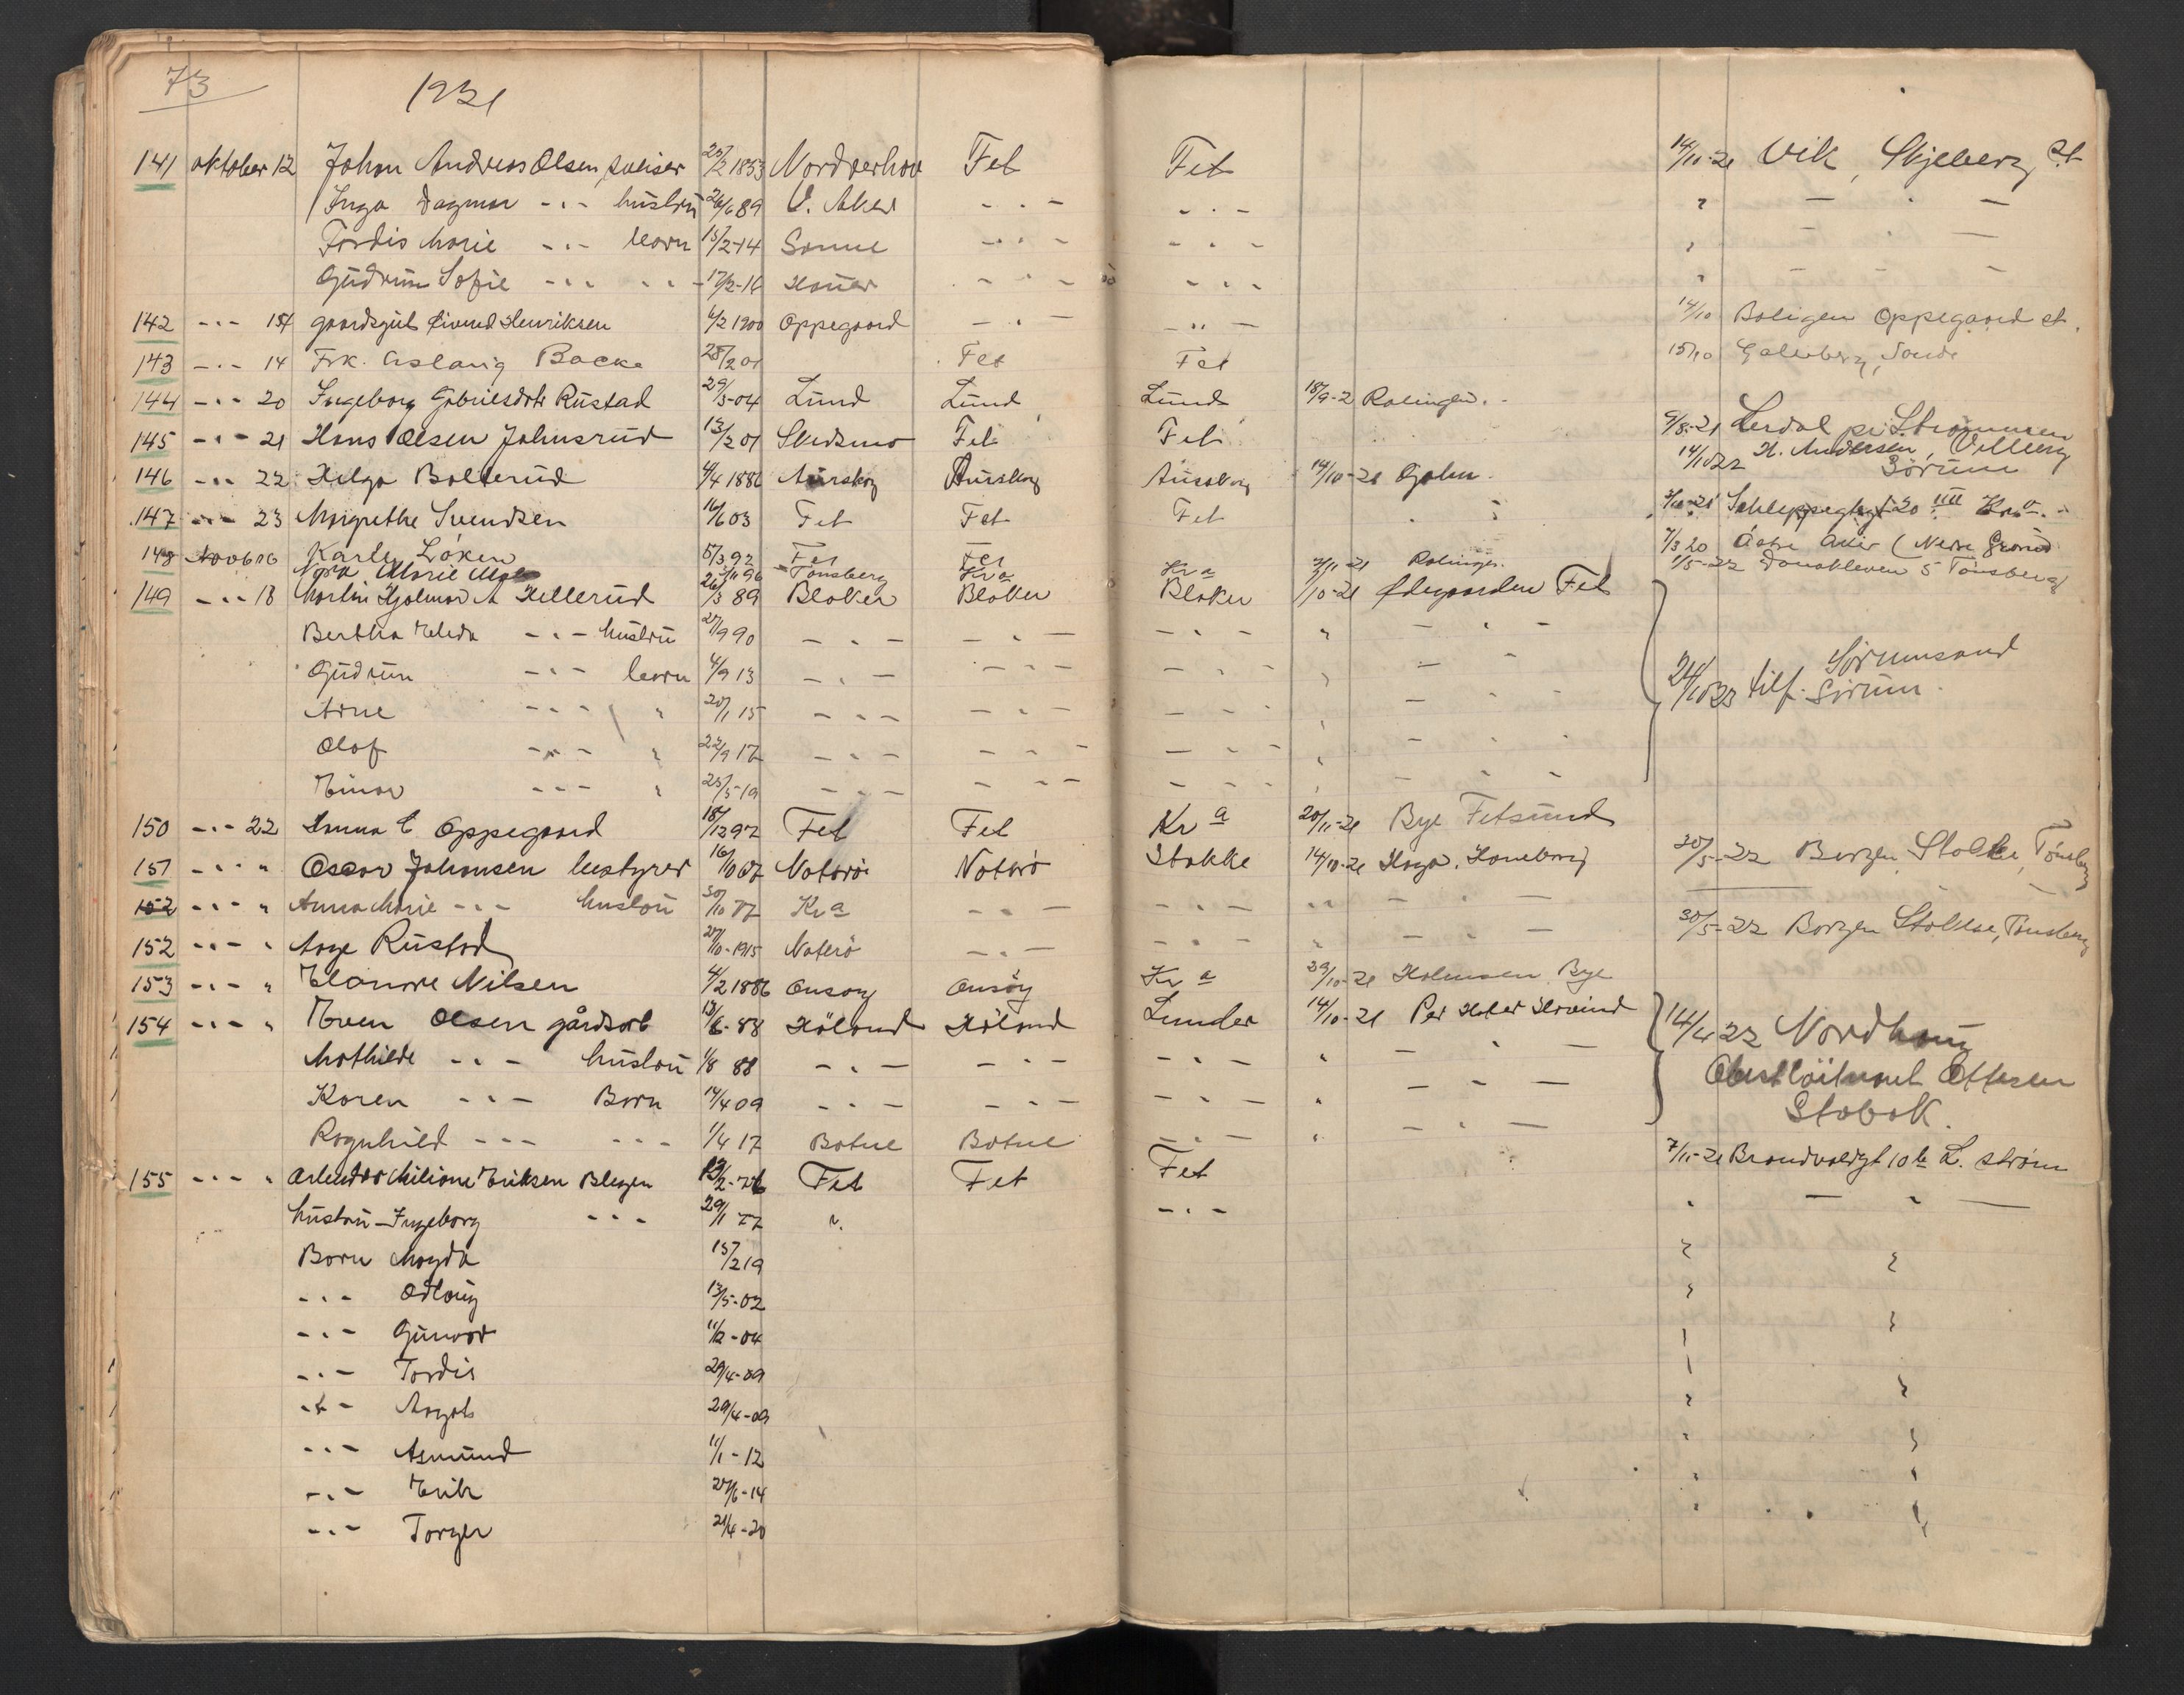 73 1921
141 oktober 12 Johan Andreas Olsen 25/2 1853 Norderhov Fet Fet 14/10-21 Vik, Skjeberg st
Inga Dagmar -"- hustru 26/6 89 V. Aker -"- -"- " - " -
Tordis Marie -"- barn 15/2-14 -"- -"- " - " -
Gudrun Sofie -"- -"- 17/2-16 -"- -"- " - " -
142 -"- 14 gaardsgut Eivind Henriksen 6/2 1900 Oppegaard -"- -"- 14/10 Boligen Oppegaard st.
143 -"- 14 Frk. Aslaug Backe 28/2 01 Fet Fet 15/10
144 -"- 20 Ingeborg Gabrielsdtr Rustad 29/3-04 Lund Lund Lund 18/9-2 Ralingen.
145 -"- 21 Hans Olsen Johnsrud 13/2 01 Skedsmo Fet Fet 9/8-21 Lerdal pr Strømmen
146 -"- 22 Helga Bollerud 4/4 1886 Aurskog Aurskog Aurskog 14/10-21 14/10 22 H. Andersen, Vilberg Sørum
147 -"- 23 Margrethe Svendsen 16/6 03 Fet Fet Fet 20 IIII Kra.
148 Løken 5/3 92 Fet Fet 7/3 20 Østre Aker (Nedre
Nora Marie 96 Tønsberg Kra Kra 2/11-21 1/5-22 5 Tønsberg
149 -"- 18 Martin Hjalmar A Hellerud 26/3 89 Blaker Blaker Blaker /10-21 Ødegaarden Fet
Bertha -"- hustru 27/9 90 -"- -"- -"- " - " -
Gudrun -"- barn 4/9 13 -"- -"- -"- " - " 24/10 23 tilf. Sørum Sørumsand
Arne -"- " 20/1 15 -"- -"- -"- " - " -
Olaf -"- " 22/9 17 -"- -"- -"- " - " -
Einar -"- " 25/5-19 -"- -"- -"- " - " -
150 -"- 22 Hanna E Oppegaard 18/12 97 Fet Fet Kra 20/11-21 Bye Fetsund
151 -"- " Oscar Johansen bestyrer 16/10 Nøterø Nøterø Stokke 14/10-21 Haga, Haneborg 30/5-22 Borgen Stokke, Tønsberg
152 -"- " Anna Marie -"- hustru 30/10 77 Kra -"- -"- " - " -
152 -"- " Aage Rustad 27/10-1915 Nøterø -"- -"- " - " - 30/5-22 Borgen Stokke, Tønsberg
153 -"- " Elanore Nilsen 4/2 1886 Onsøy Onsøy Kra 29/10-21 Holmsen Bye
154 -"- " Even Olsen gårdsarb 13/6-88 Høland Høland Lunder 14/10-21 Per Holer 14/4 22 Nordhaug
Mathilde -"- hustru 1/8 88 -"- -"- -"- " - " - Oberstløitnant Ottesen
Karen -"- Barn 14/4 09 -"- -"- -"- " - " - Stabæk.
Ragnhild -"- -"- 1/4 17 Botne Botne -"- " - " -
155 -"- " Arbeider Milian Eriksen 12/2-76 Fet Fet Fet 7/11-21 Brandvoldgt 10b L. strøm
hustru - Ingeborg -"- 29/1 77 " -"- " - " -
Barn Magda 15/2 19 " "
-"- Odlaug 13/5-02 " "
-"- Gunvor 11/2-04 " "
-"- Tordis 29/4-09 "
-"- Margot 29/4-09 " "
-"- Asmund 11/1-12 " "
-"- Erik 27/6-14 " "
-"- Torger 21/4-20 " "